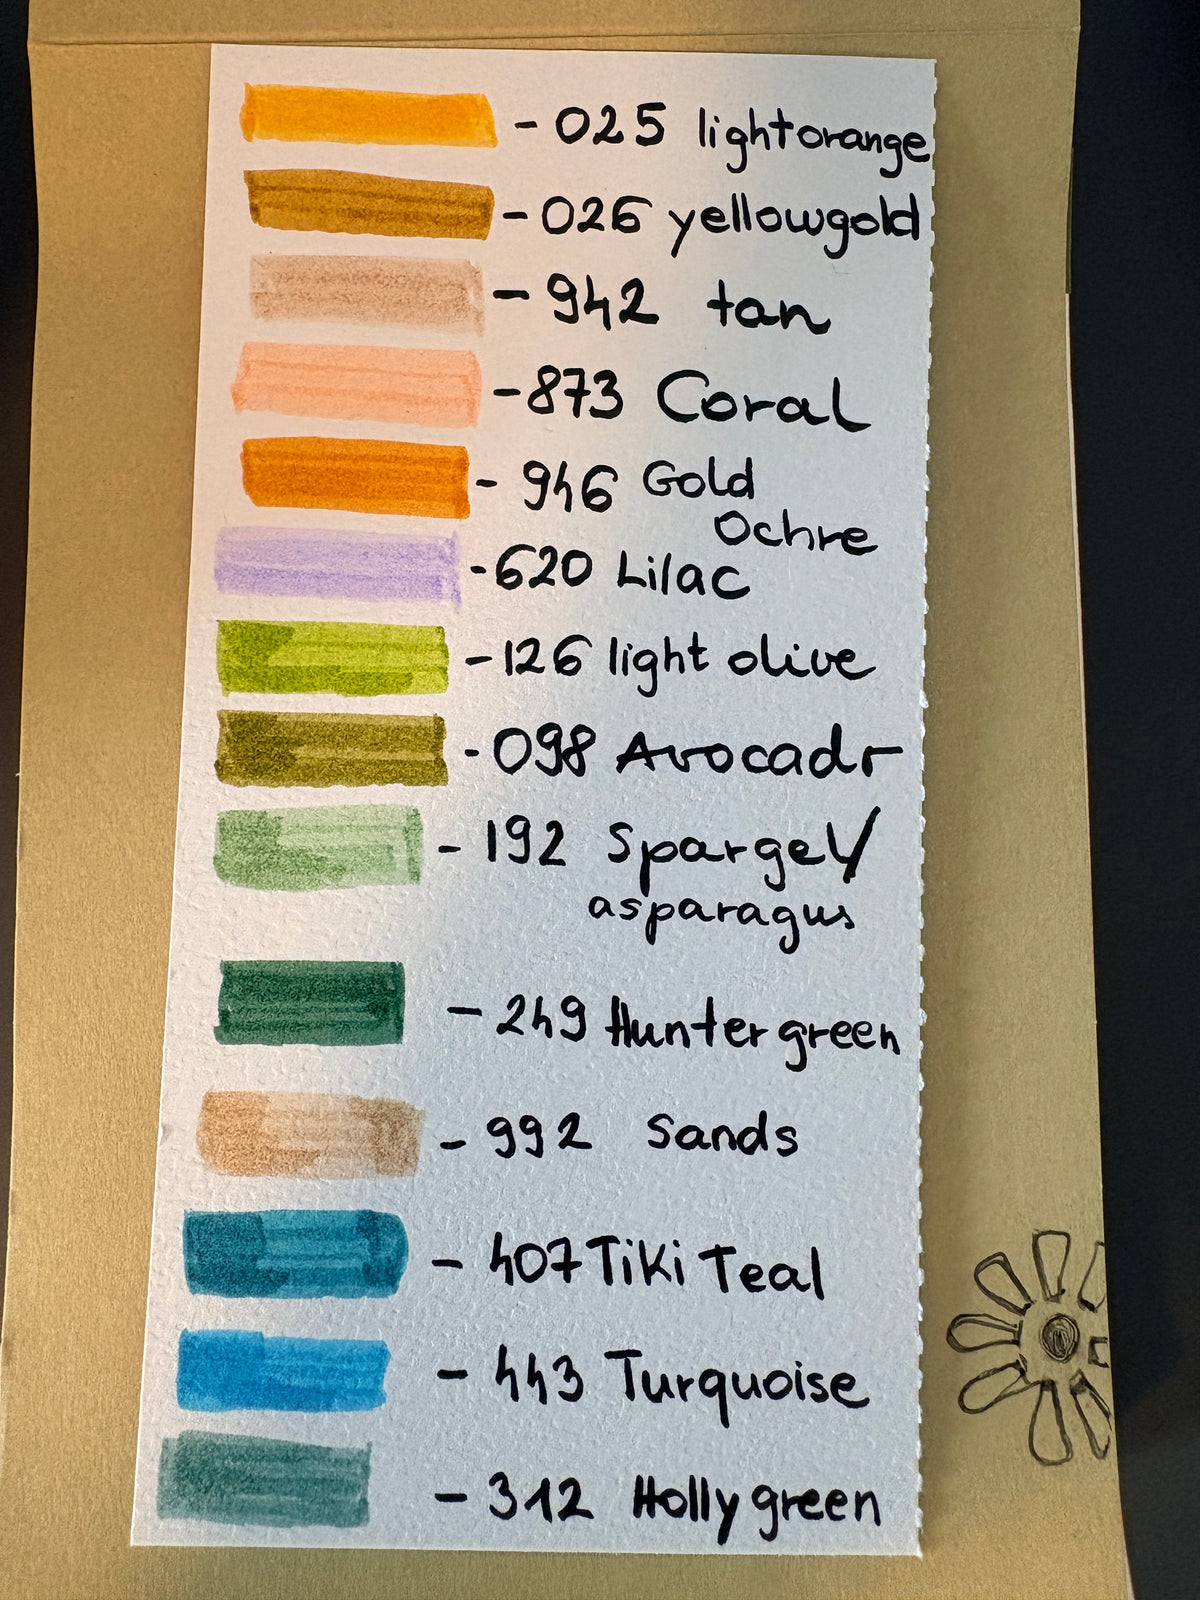 - 025 lightorange
- 026 yellowgold
- 942 tan
- 873 Coral
- 946 Gold
Ochre
- 620 Lilac
- 126 light olive
- 098 Avocado
- 192 Spargel/
asparagus
- 249 Hunter green
- 992 Sands
- 407 Tiki Teal
- 443 Turquoise
- 312 Holly green